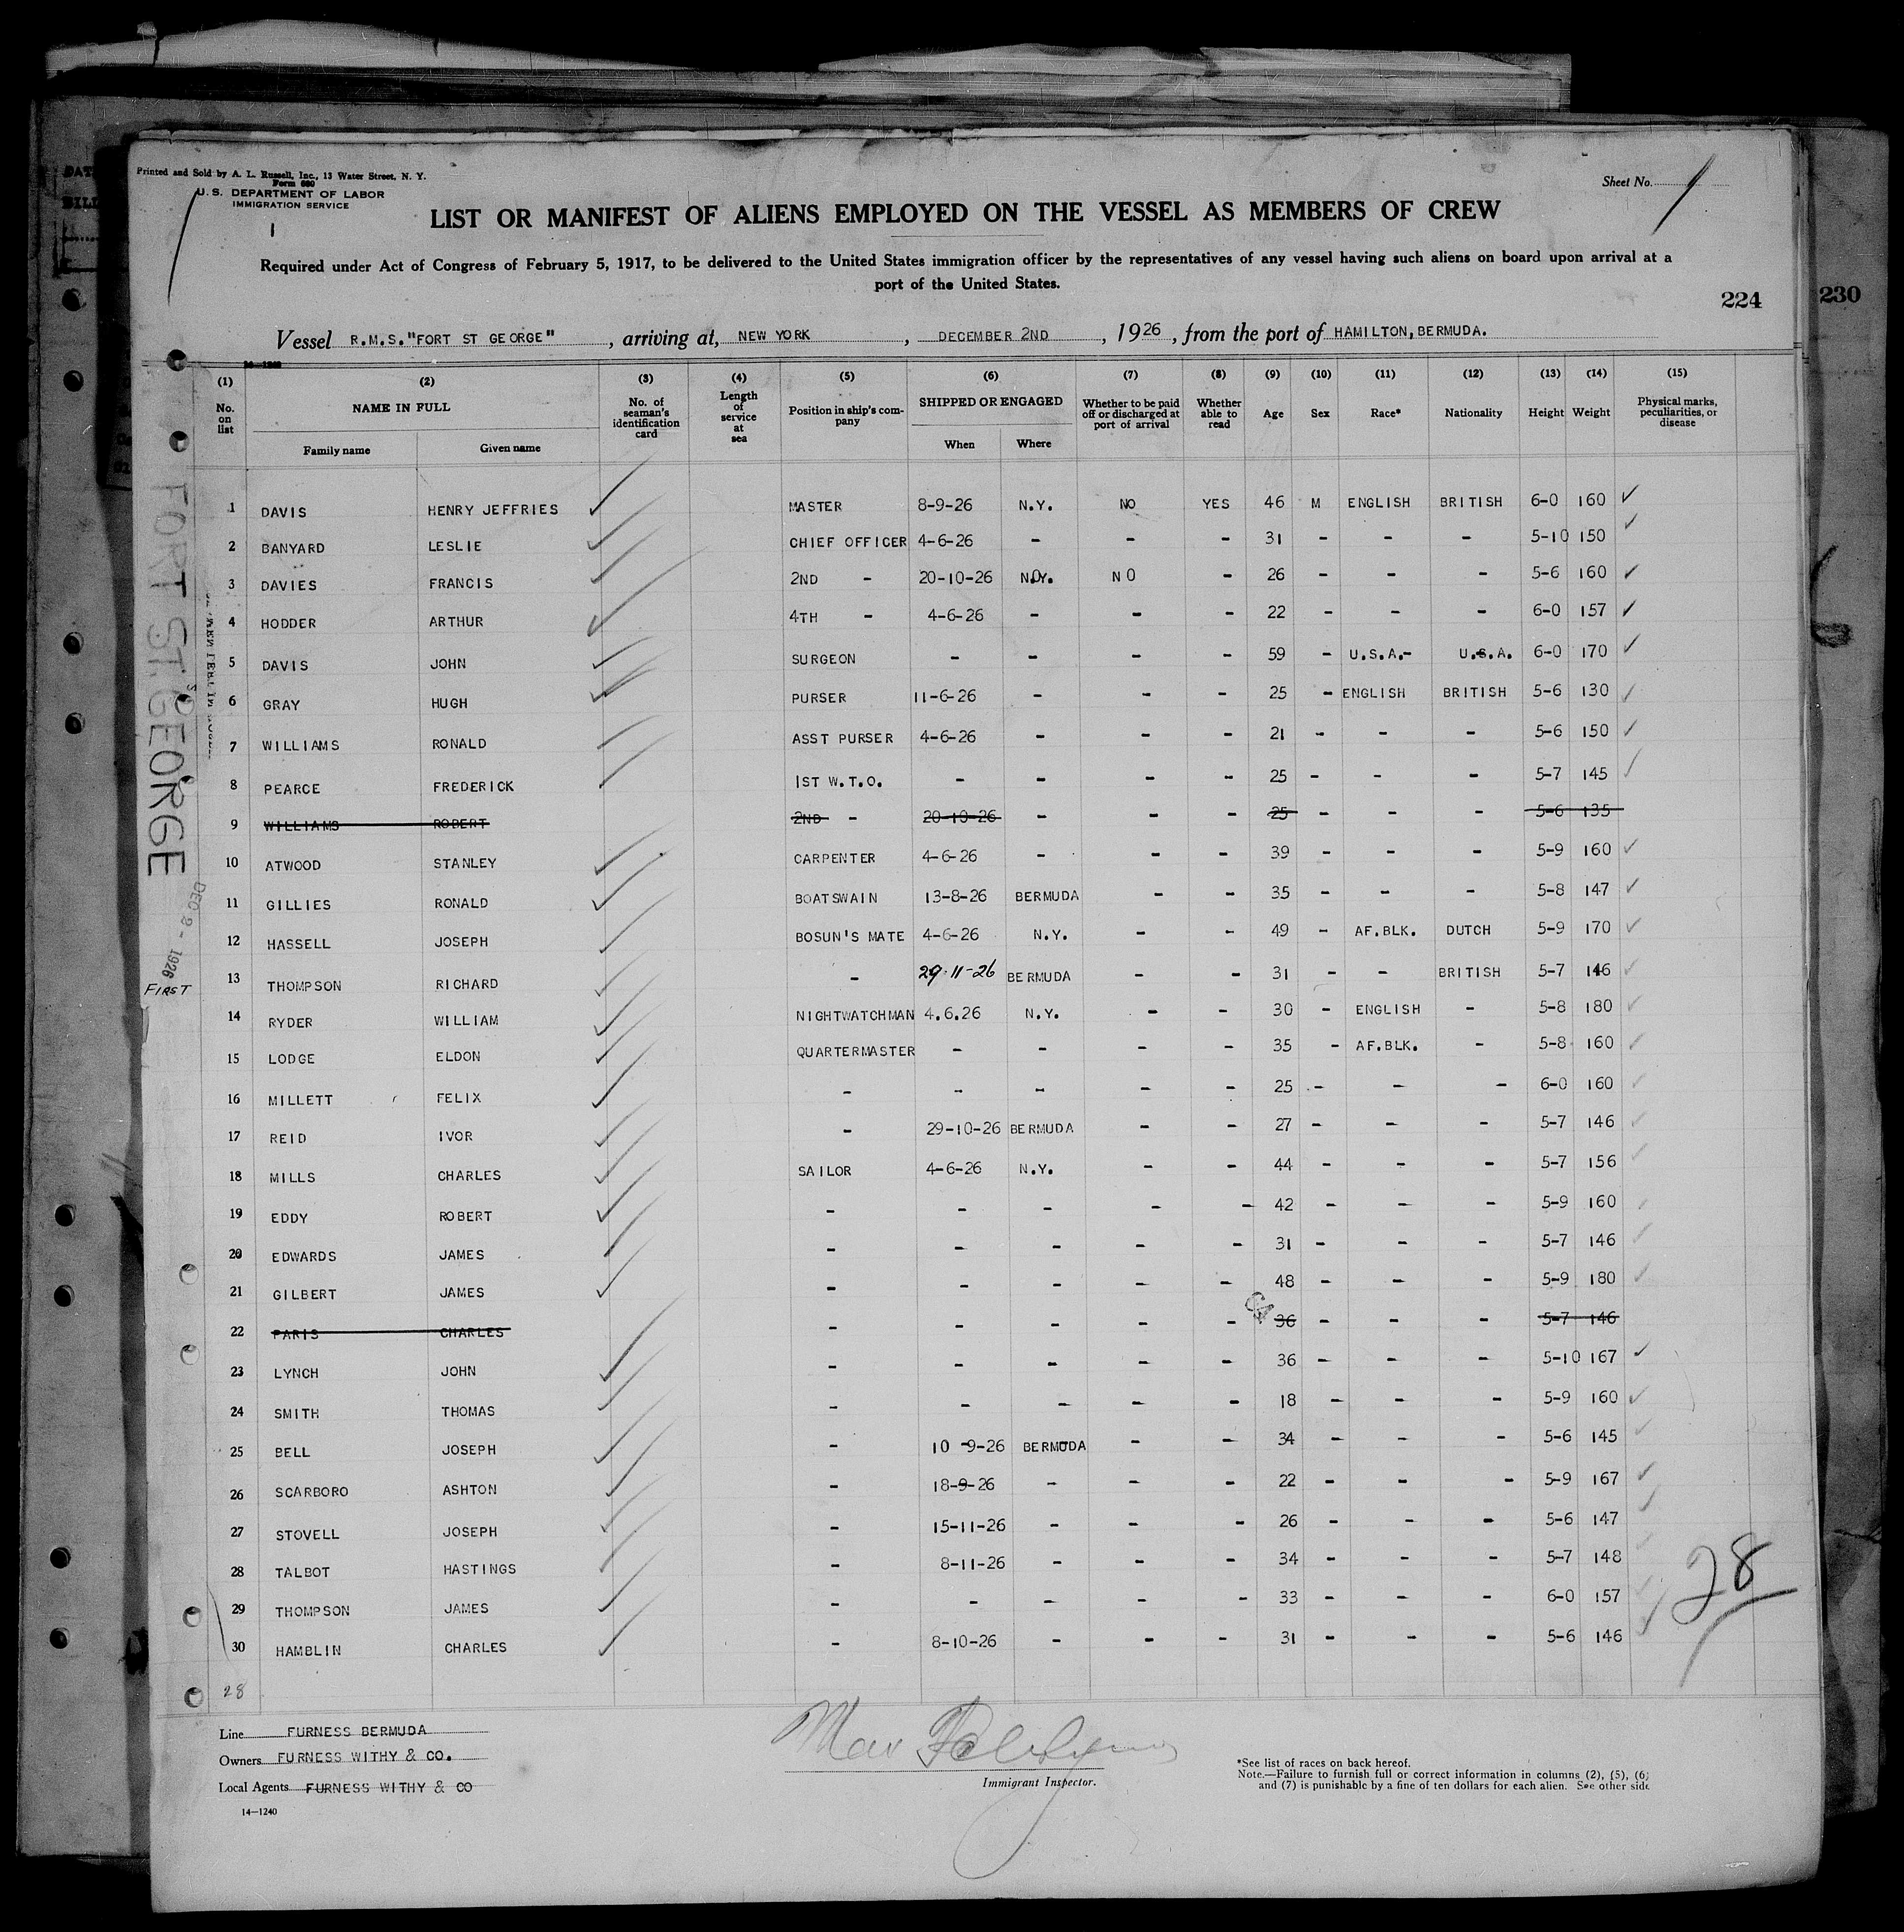 Printed and Sold by A. L. Russell, Inc., 13 Water Street, N. Y.
Form 680
U. S. DEPARTMENT OF LABOR
IMMIGRATION SERVICE
Sheet No. 1
LIST OR MANIFEST OF ALIENS EMPLOYED ON THE VESSEL AS MEMBERS OF CREW
Required under Act of Congress of February 5, 1917, to be delivered to the United States immigration officer by the representatives of any vessel having such aliens on board upon arrival at a
port of the United States.
224
230
Vessel R.M.S."FORT ST GEORGE" , arriving at, NEW YORK , DECEMBER 2ND , 1926 , from the port of HAMILTON, BERMUDA.
(1) (2) (3) (4) (5) (6) (7) (8) (9) (10) (11) (12) (13) (14) (15)
No. on list NAME IN FULL Family name Given name No. of seaman's identification card Length of service at sea Position in ship's company SHIPPED OR ENGAGED When Where Whether to be paid off or discharged at port of arrival Whether able to read Age Sex Race* Nationality Height Weight Physical marks, peculiarities, or disease
1 DAVIS HENRY JEFFRIES MASTER 8-9-26 N.Y. NO YES 46 M ENGLISH BRITISH 6-0 160
2 BANYARD LESLIE CHIEF OFFICER 4-6-26 - - - 31 - - - 5-10 150
3 DAVIES FRANCIS 2ND - 20-10-26 N.Y. NO - 26 - - - 5-6 160
4 HODDER ARTHUR 4TH - 4-6-26 - - - 22 - - - 6-0 157
5 DAVIS JOHN SURGEON - - - - 59 - U.S.A.- U.S.A. 6-0 170
6 GRAY HUGH PURSER 11-6-26 - - - 25 - ENGLISH BRITISH 5-6 130
7 WILLIAMS RONALD ASST PURSER 4-6-26 - - - 21 - - - 5-6 150
8 PEARCE FREDERICK 1ST W.T.O. - - - - 25 - - - 5-7 145
9 WILLIAMS ROBERT 2ND - 20-10-26 - - - 25 - - - 5-6 135
10 ATWOOD STANLEY CARPENTER 4-6-26 - - - 39 - - - 5-9 160
11 GILLIES RONALD BOATSWAIN 13-8-26 BERMUDA - - 35 - - - 5-8 147
12 HASSELL JOSEPH BOSUN'S MATE 4-6-26 N.Y. - - 49 - AF.BLK. DUTCH 5-9 170
13 THOMPSON RICHARD - 29-11-26 BERMUDA - - 31 - - BRITISH 5-7 146
14 RYDER WILLIAM NIGHTWATCHMAN 4.6.26 N.Y. - - 30 - ENGLISH - 5-8 180
15 LODGE ELDON QUARTERMASTER - - - - 35 - AF.BLK. - 5-8 160
16 MILLETT FELIX - - - - - 25 - - - 6-0 160
17 REID IVOR - 29-10-26 BERMUDA - - 27 - - - 5-7 146
18 MILLS CHARLES SAILOR 4-6-26 N.Y. - - 44 - - - 5-7 156
19 EDDY ROBERT - - - - - 42 - - - 5-9 160
20 EDWARDS JAMES - - - - - 31 - - - 5-7 146
21 GILBERT JAMES - - - - - 48 - - - 5-9 180
22 PARIS CHARLES - - - - - 36 - - - 5-7 146
23 LYNCH JOHN - - - - - 36 - - - 5-10 167
24 SMITH THOMAS - - - - - 18 - - - 5-9 160
25 BELL JOSEPH - 10-9-26 BERMUDA - - 34 - - - 5-6 145
26 SCARBORO ASHTON - 18-9-26 - - - 22 - - - 5-9 167
27 STOVELL JOSEPH - 15-11-26 - - - 26 - - - 5-6 147
28 TALBOT HASTINGS - 8-11-26 - - - 34 - - - 5-7 148
29 THOMPSON JAMES - - - - - 33 - - - 6-0 157
30 HAMBLIN CHARLES - 8-10-26 - - - 31 - - - 5-6 146
28
28
FORT ST. GEORGE
DEC 2 - 1926
FIRST
Line FURNESS BERMUDA
Owners FURNESS WITHY & CO.
Local Agents FURNESS WITHY & CO
14—1240
Immigrant Inspector.
*See list of races on back hereof.
Note.—Failure to furnish full or correct information in columns (2), (5), (6)
and (7) is punishable by a fine of ten dollars for each alien. See other side